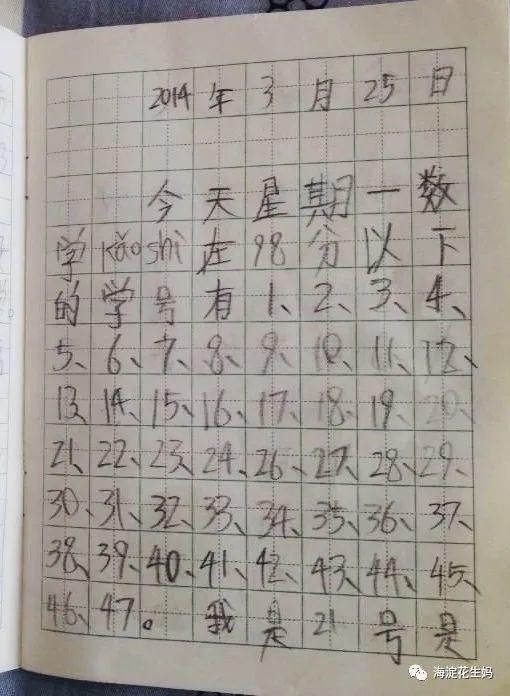 2014年3月25日
今天星期一数
学kǎoshì在98分以下
的学号有1、2、3、4、
5、6、7、8、9、10、11、12、
13、14、15、16、17、18、19、20、
21、22、23、24、26、27、28、29、
30、31、32、33、34、35、36、37、
38、39、40、41、42、43、44、45、
46、47。我是21号是
海淀花生妈